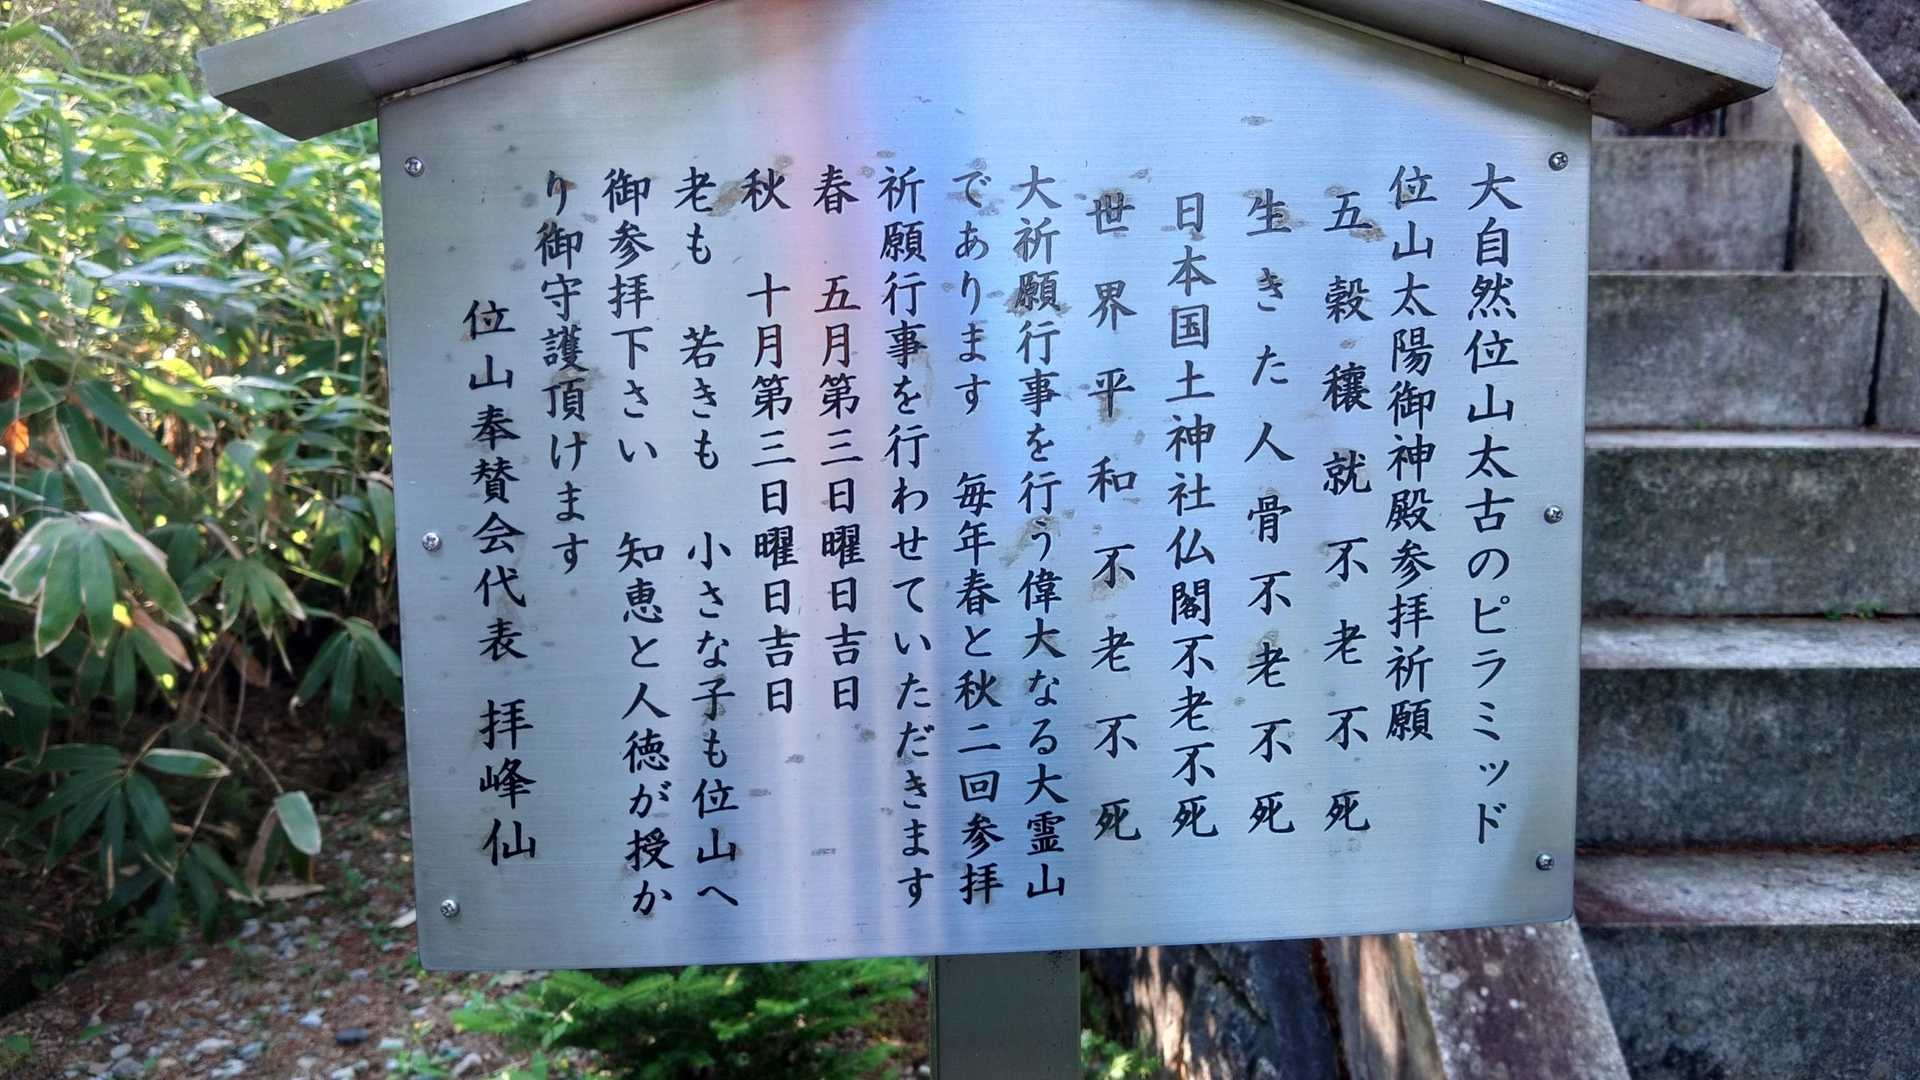 大自然位山太古のピラミッド
位山太陽御神殿参拝祈願
五穀穰就不老不死
生きた人骨不老不死
日本国土神社仏閣不老不死
世界平和不老不死
大祈願行事を行う偉大なる大霊山
であります　毎年春と秋二回参拝
祈願行事を行わせていただきます
春　五月第三日曜日吉日
秋　十月第三日曜日吉日
老も　若きも　小さな子も位山へ
御参拝下さい　知恵と人徳が授か
り御守護頂けます
位山奉賛会代表　拝峰仙